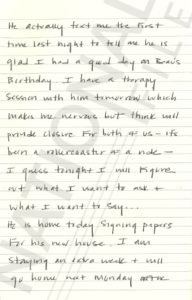 He actually text me the first
time last night to tell me he is
glad I had a good day on Evan's
Birthday. I have a therapy
session with him tomorrow which
makes me nervous but think will
provide closure for both of us - it's
been a rollercoaster of a ride -
I guess tonight I will figure
out what I want to ask +
what I want to say...
He is home today signing papers
for his new house. I am
staying an extra week + will
go home next Monday